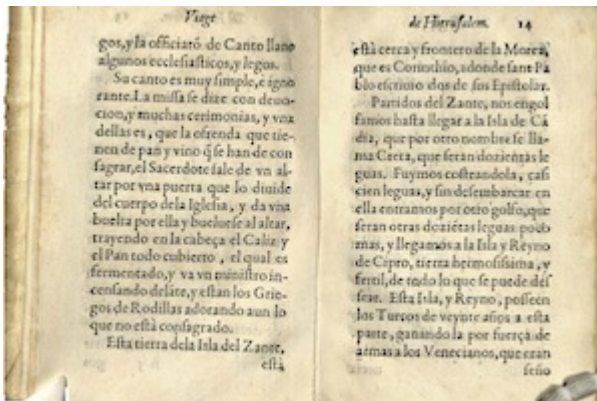 Viage
gos, y la officiarõ de Canto llano
algunos ecclesiasticos, y legos.
Su canto es muy simple, e igno
rante. La missa se dize con deuo-
cion, y muchas cerimonias, y vna
dellas es, que la ofrenda que tie-
nen de pan y vino q̃ se han de con
sagrar, el Sacerdote sale de vn al-
tar por vna puerta que lo diuide
del cuerpo de la Iglesia, y da vna
buelta por ella y bueluese al altar,
trayendo en la cabeça el Caliz y
el Pan todo cubierto, el qual es
fermentado, y va vn ministro in-
censando delãte, y estan los Grie-
gos de Rodillas adorando aun lo
que no està consagrado.
Esta tierra dela Isla del Zante,
està
de Hierusalem. 14
està cerca y frontero de la Morea,
que es Corinthio, adonde sant Pa
blo escriuio dos de sus Epistolas.
Partidos del Zante, nos engol
famos hasta llegar a la Isla de Cã
dia, que por otro nombre se lla-
ma Creta, que seran dozientas le
guas. Fuymos costeandola, casi
cien leguas, y sin desembarcar en
ella entramos por otro golfo, que
seran otras doziẽtas leguas poco
mas, y llegamos a la Isla y Reyno
de Cipro, tierra hermosissima, y
fertil, de todo lo que se puede des
sear. Esta Isla, y Reyno, posseen
los Turcos de veynte años a esta
parte, ganando la por fuerça de
armas a los Venecianos, que eran
seño